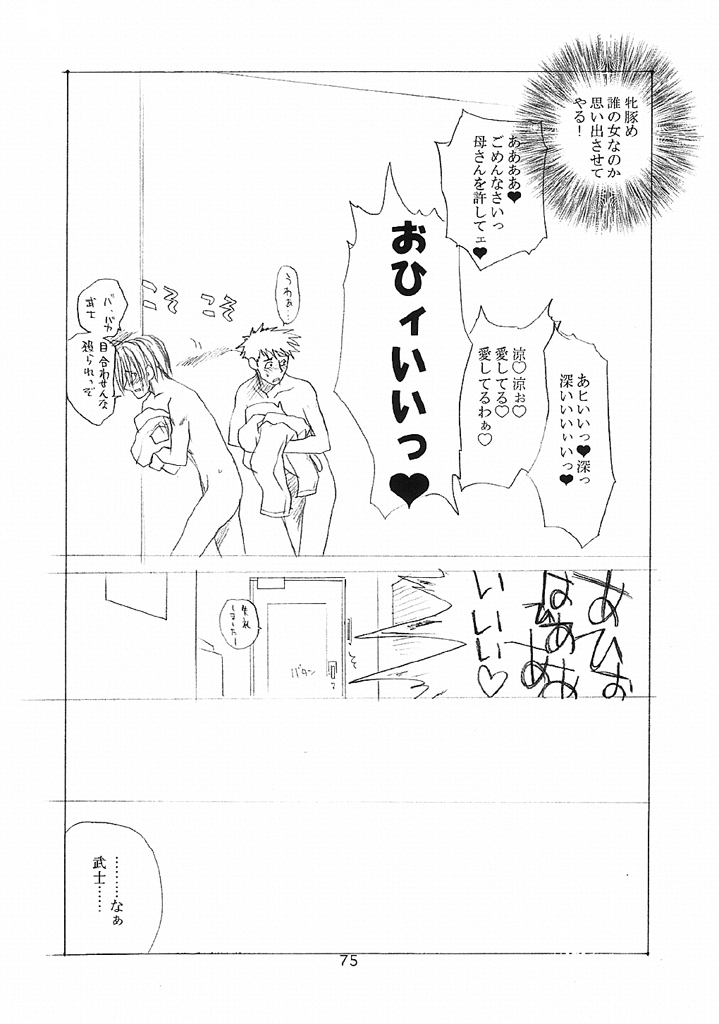 牝豚め
誰の女なのか
思い出させて
やる！
ああああ♥
ごめんなさいっ
母さんを許してェ♥
おひィいいっ♥
あヒいいっ♥深っ
深いいいぃいっ♥
涼♡涼ぉ♡
愛してる♡
愛してるわぁ♡
うわぁ…
こそ
こそ
バ、バカ
武士
目合わせんな
殺られっぞ
あひぉ
はぁああ
いいいい♡
失礼
しましたー
バタン
………なぁ
武士……
75